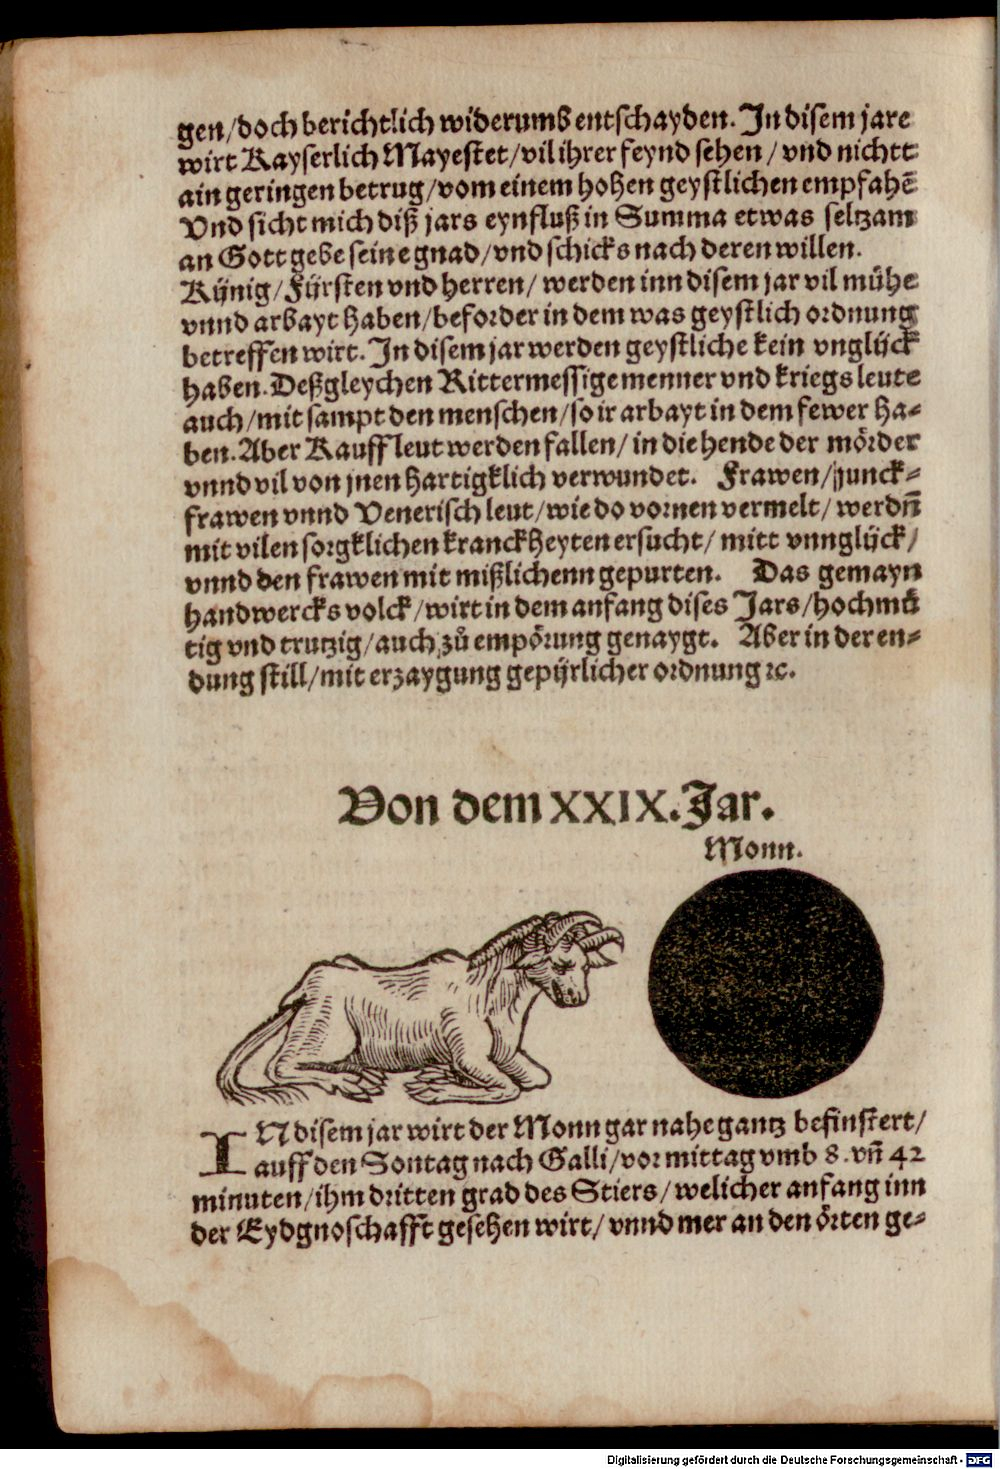 gen/doch berichtlich widerumb entschayden. In disem jare
wirt Kayserlich Mayestet/vil ihrer feynd sehen/ vnd nichtt
ain geringen betrug/vom einem hohen geystlichen empfahē
Vnd sicht mich diß jars eynfluß in Summa etwas seltzam
an Gott gebe seine gnad/vnd schicks nach deren willen.
Kÿnig/Fÿrsten vnd herren/ werden inn disem jar vil mühe
vnnd arbayt haben/beforder in dem was geystlich ordnung
betreffen wirt. In disem jar werden geystliche kein vnglÿck
haben. Deßgleychen Rittermessige menner vnd kriegs leute
auch/mit sampt den menschen/so ir arbayt in dem fewer ha⸗
ben. Aber Kauffleut werden fallen/ in die hende der mörder
vnnd vil von jnen hartigklich verwundet. Frawen/junck⸗
frawen vnnd Venerisch leut/wie do vornen vermelt/ werdñ
mit vilen sorgklichen kranckheyten ersucht/ mitt vnnglÿck/
vnnd den frawen mit mißlichenn gepurten. Das gemayn
handwercks volck/wirt in dem anfang dises Jars/hochmů
tig vnd trutzig/auch zů empörung genaygt. Aber in der en⸗
dung still/mit erzaygung gepÿrlicher ordnung ⁊c.
Von dem XXIX. Jar.
Monn.
IN disem jar wirt der Monn gar nahe gantz befinstert/
auff den Sontag nach Galli/vor mittag vmb 8. vñ 42
minuten/ihm dritten grad des Stiers/welicher anfang inn
der Eydgnoschafft gesehen wirt/ vnnd mer an den örten ge⸗
Digitalisierung gefördert durch die Deutsche Forschungsgemeinschaft - DFG